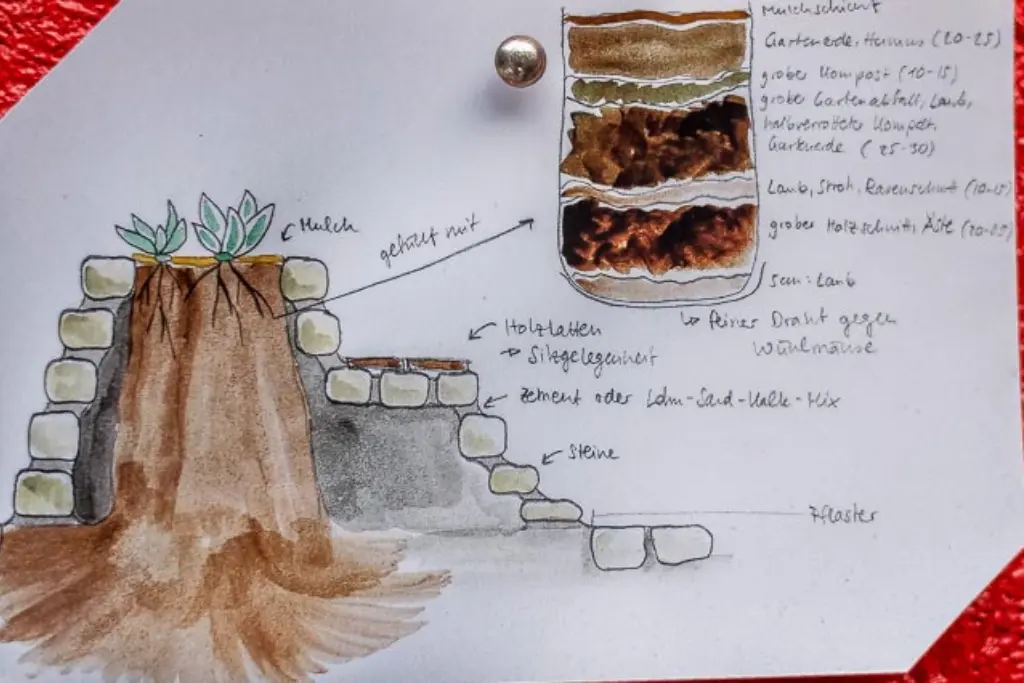 Mulchschicht
Gartenerde, Humus (20-25)
grober Kompost (10-15)
grober Gartenabfall, Laub,
halbverrotteter Kompost,
Gartenerde (25-30)
Laub, Stroh, Rasenschnitt (10-15)
grober Holzschnitt, Äste (20-25)
Laub
↳ feiner Draht gegen
Wühlmäuse
Mulch
gefüllt mit
Holzlatten
→ Sitzgelegenheit
Zement oder Lehm-Sand-Kalk-Mix
Steine
Pflaster